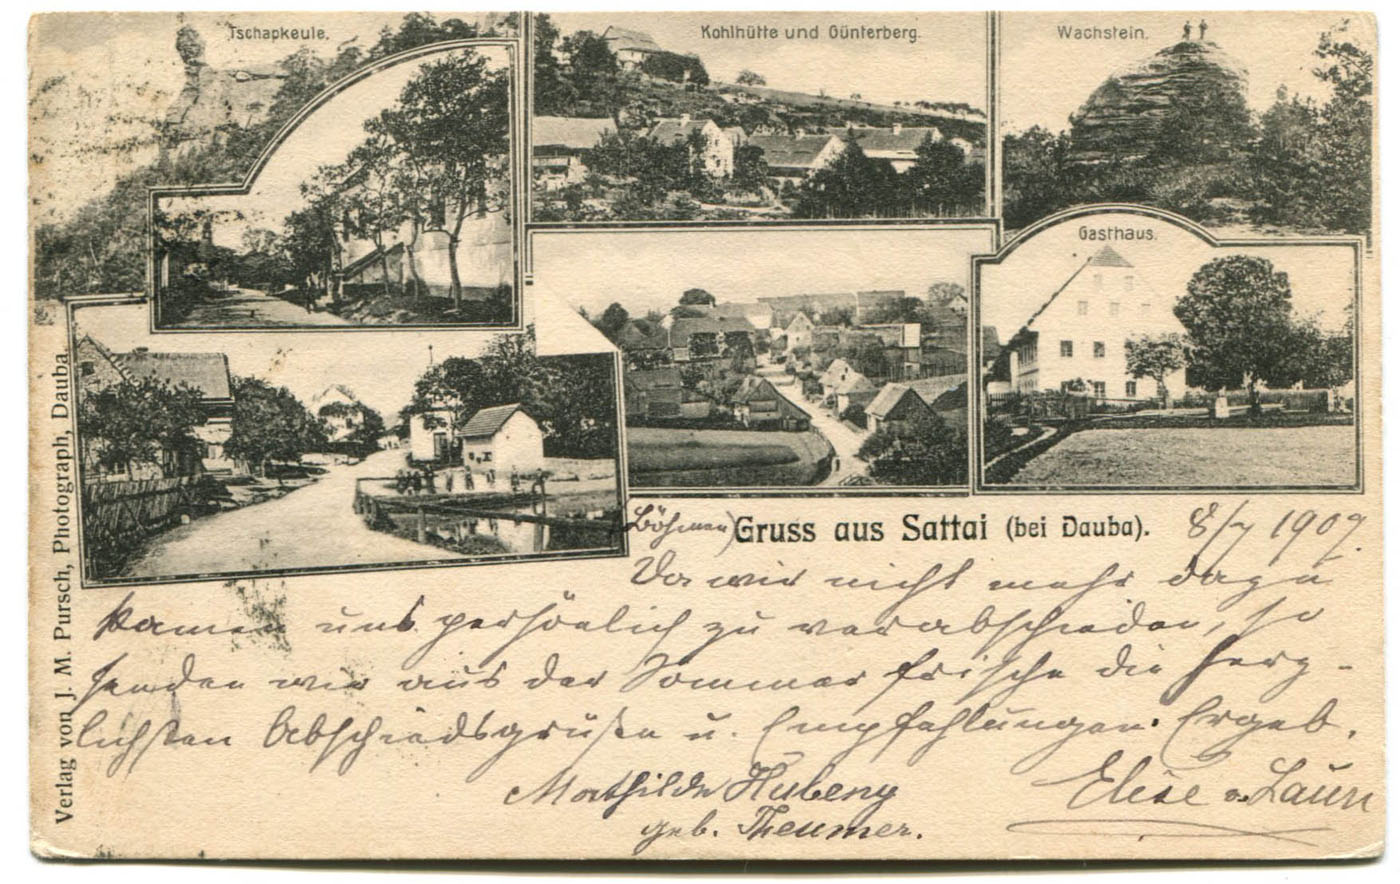 Tschapkeule.
Kohlhütte und Günterberg.
Wachstein.
Gasthaus.
Verlag von J. M. Pursch, Photograph, Dauba.
(Böhmen) Gruss aus Sattai (bei Dauba). 8/7 1907.
Da wir nicht mehr dazu
kamen uns persönlich zu verabschieden, so
senden wir aus der Sommerfrische die herz-
lichsten Abschiedsgrüße u. Empfehlungen. Ergeb.
Mathilde Hubeny Elise
geb. Theumer.